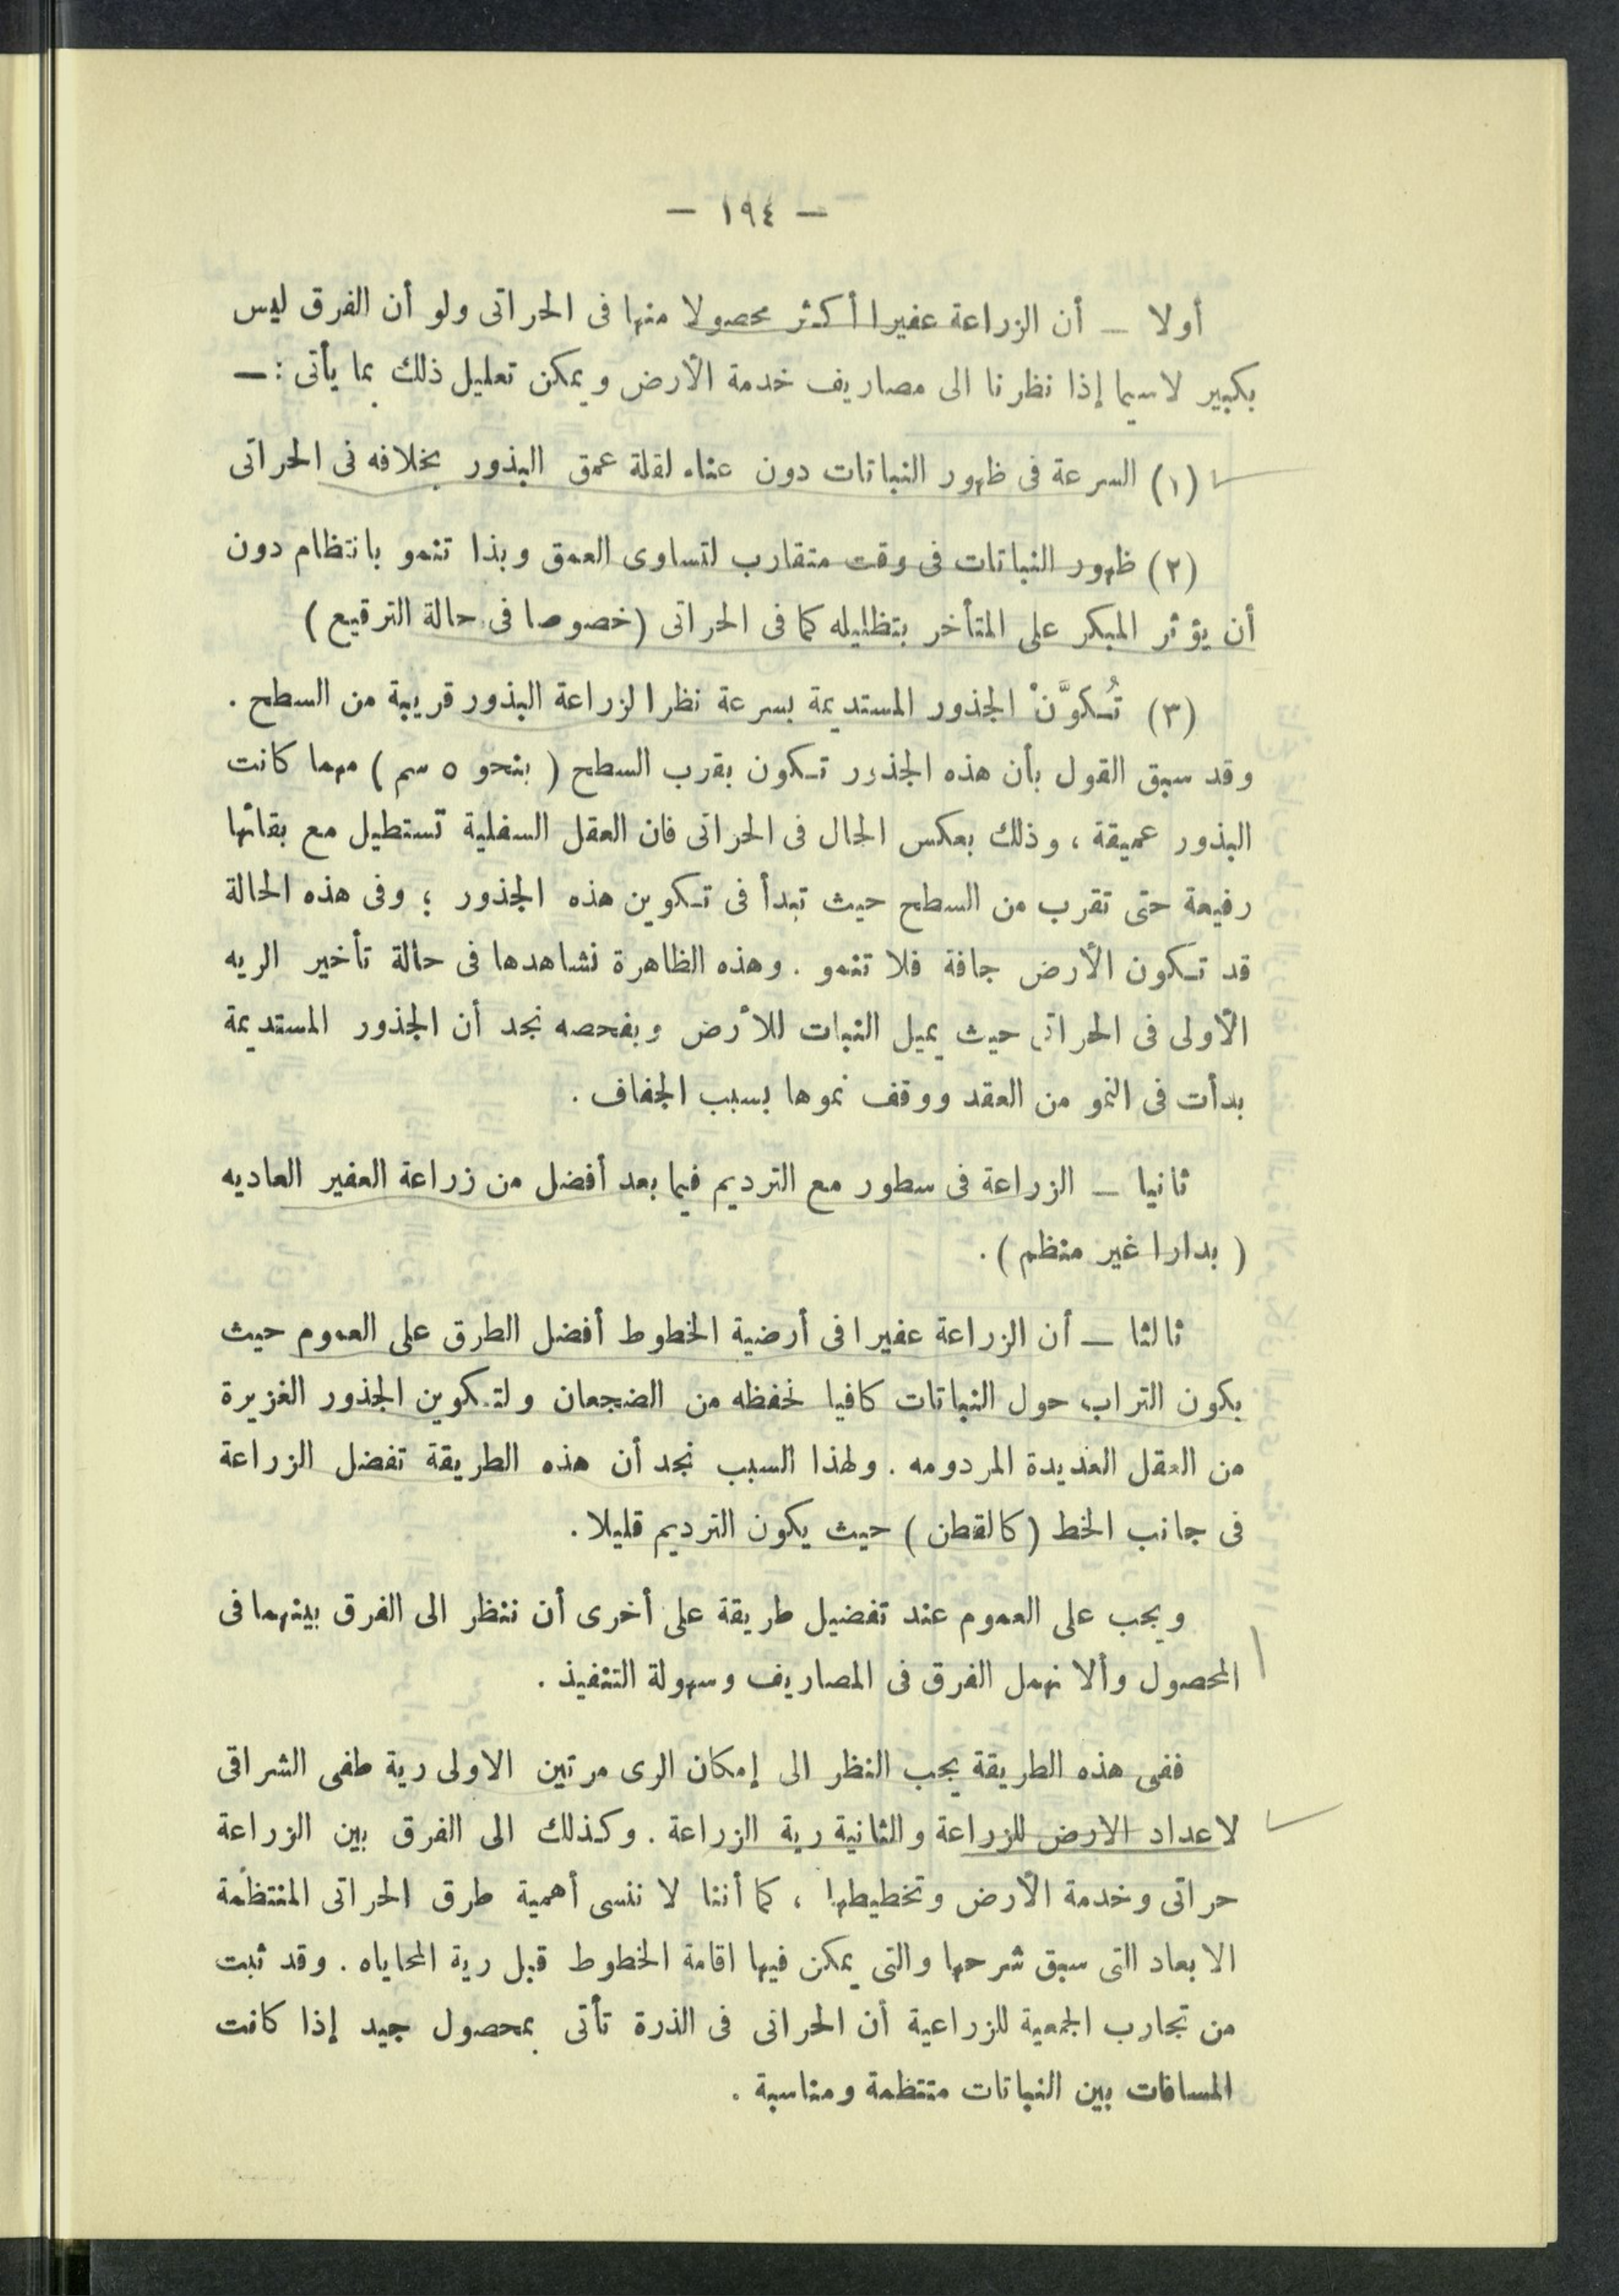 — ١٩٤ —
أولا — أن الزراعة عفيرا أكثر محصولا منها فى الحراتى ولو أن الفرق ليس
بكبير لاسيما إذا نظرنا الى مصاريف خدمة الأرض ويمكن تعليل ذلك بما يأتى : —
(١) السرعة فى ظهور النباتات دون عناء لقلة عمق البذور بخلافه فى الحراتى
(٢) ظهور النباتات فى وقت متقارب لتساوى العمق وبذا تنمو بانتظام دون
أن يؤثر المبكر على المتأخر بتظليله كما فى الحراتى (خصوصا فى حالة الترقيع)
(٣) تُكوَّنْ الجذور المستديمة بسرعة نظرا لزراعة البذور قريبة من السطح .
وقد سبق القول بأن هذه الجذور تكون بقرب السطح ( بنحو ٥ سم ) مهما كانت
البذور عميقة ، وذلك بعكس الحال فى الحراتى فان العقل السفلية تستطيل مع بقائها
رفيعة حتى تقرب من السطح حيث تبدأ فى تكوين هذه الجذور ؛ وفى هذه الحالة
قد تكون الأرض جافة فلا تنمو . وهذه الظاهرة نشاهدها فى حالة تأخير الريه
الأولى فى الحراتى حيث يميل النبات للأرض وبفحصه نجد أن الجذور المستديمة
بدأت فى النمو من العقد ووقف نموها بسبب الجفاف .
ثانيا — الزراعة فى سطور مع الترديم فيما بعد أفضل من زراعة العفير العاديه
( بدارا غير منظم ) .
ثالثا — أن الزراعة عفيرا فى أرضية الخطوط أفضل الطرق على العموم حيث
يكون التراب حول النباتات كافيا لحفظه من الضجعان ولتكوين الجذور الغزيرة
من العقل العديدة المردومه . ولهذا السبب نجد أن هذه الطريقة تفضل الزراعة
فى جانب الخط (كالقطن) حيث يكون الترديم قليلا .
ويجب على العموم عند تفضيل طريقة على أخرى أن ننظر الى الفرق بينهما فى
المحصول وألا نهمل الفرق فى المصاريف وسهولة التنفيذ .
ففى هذه الطريقة يجب النظر الى إمكان الرى مرتين الاولى رية طفى الشراقى
لاعداد الارض للزراعة والثانية رية الزراعة . وكذلك الى الفرق بين الزراعة
حراتى وخدمة الأرض وتخطيطها ، كما أننا لا ننسى أهمية طرق الحراتى المنتظمة
الابعاد التى سبق شرحها والتى يمكن فيها اقامة الخطوط قبل رية المحاياه . وقد ثبت
من تجارب الجمعية للزراعية أن الحراتى فى الذرة تأتى بمحصول جيد إذا كانت
المسافات بين النباتات منتظمة ومناسبة .